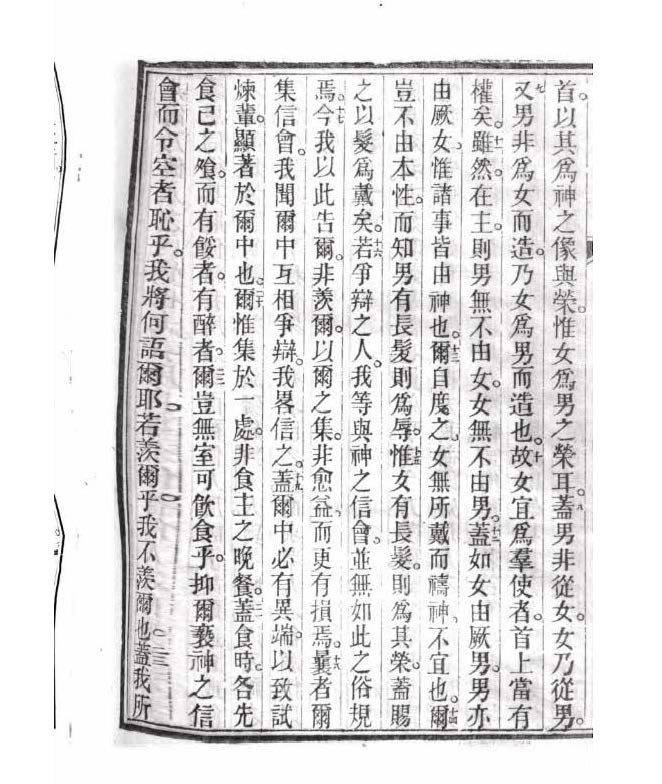 首。以其爲神之像與榮。惟女爲男之榮耳。蓋男非從女。女乃從男。
又男非爲女而造。乃女爲男而造也。故女宜爲羣使者。首上當有
權矣。雖然。在主。則男無不由女。女無不由男。蓋如女由厥男。男亦
由厥女、惟諸事皆由神也。爾自度之、女無所戴而禱神、不宜也。爾
豈不由本性。而知男有長髮則爲辱。惟女有長髮。則爲其榮。蓋賜
之以髮爲戴矣。若爭辯之人。我等與神之信會。並無如此之俗規
焉。今我以此吿爾。非羨爾。以爾之集。非愈益、而更有損焉。曩者爾
集信會。我聞爾中互相爭辯。我畧信之。蓋爾中必有異端。以致試
煉輩。顯著於爾中也。爾惟集於一處。非食主之晩餐。蓋食時。各先
食己之飱。而有餒者。有醉者。爾豈無室可飮食乎。抑爾褻神之信
會而令空者恥乎。我將何語爾耶若羨爾乎我不羨爾也蓋我所